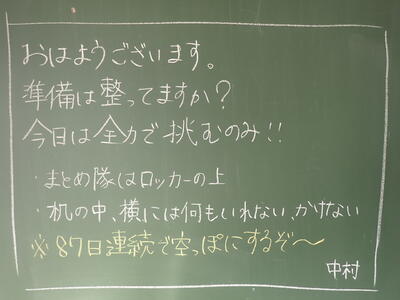 おはようございます。
準備は整ってますか?
今日は全力で挑むのみ!!
・まとめ隊はロッカーの上
・机の中、横には何もいれない、かけない
※87日連続で空っぽにするぞ〜
中村